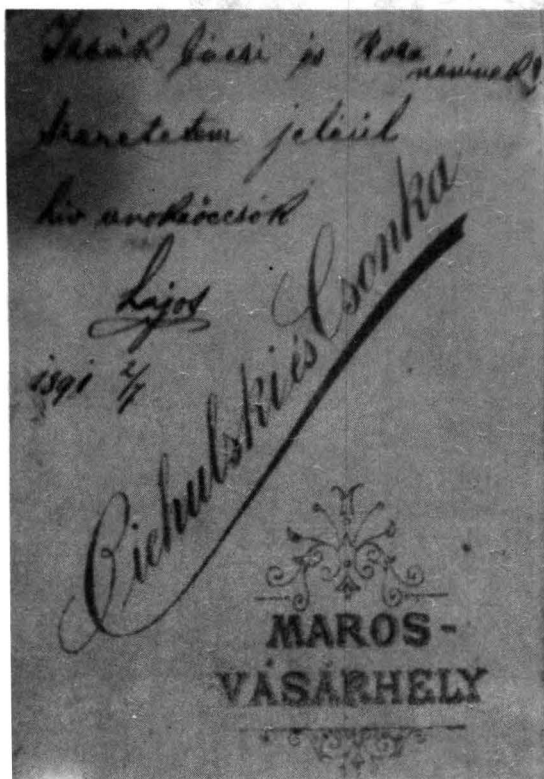 Izsák bácsi és Roza
néninek!
Szeretetem jeléül
hív unokaöccsök
Lajos
1891 2/7
Cichulski és Csonka
MAROS-
VÁSÁRHELY